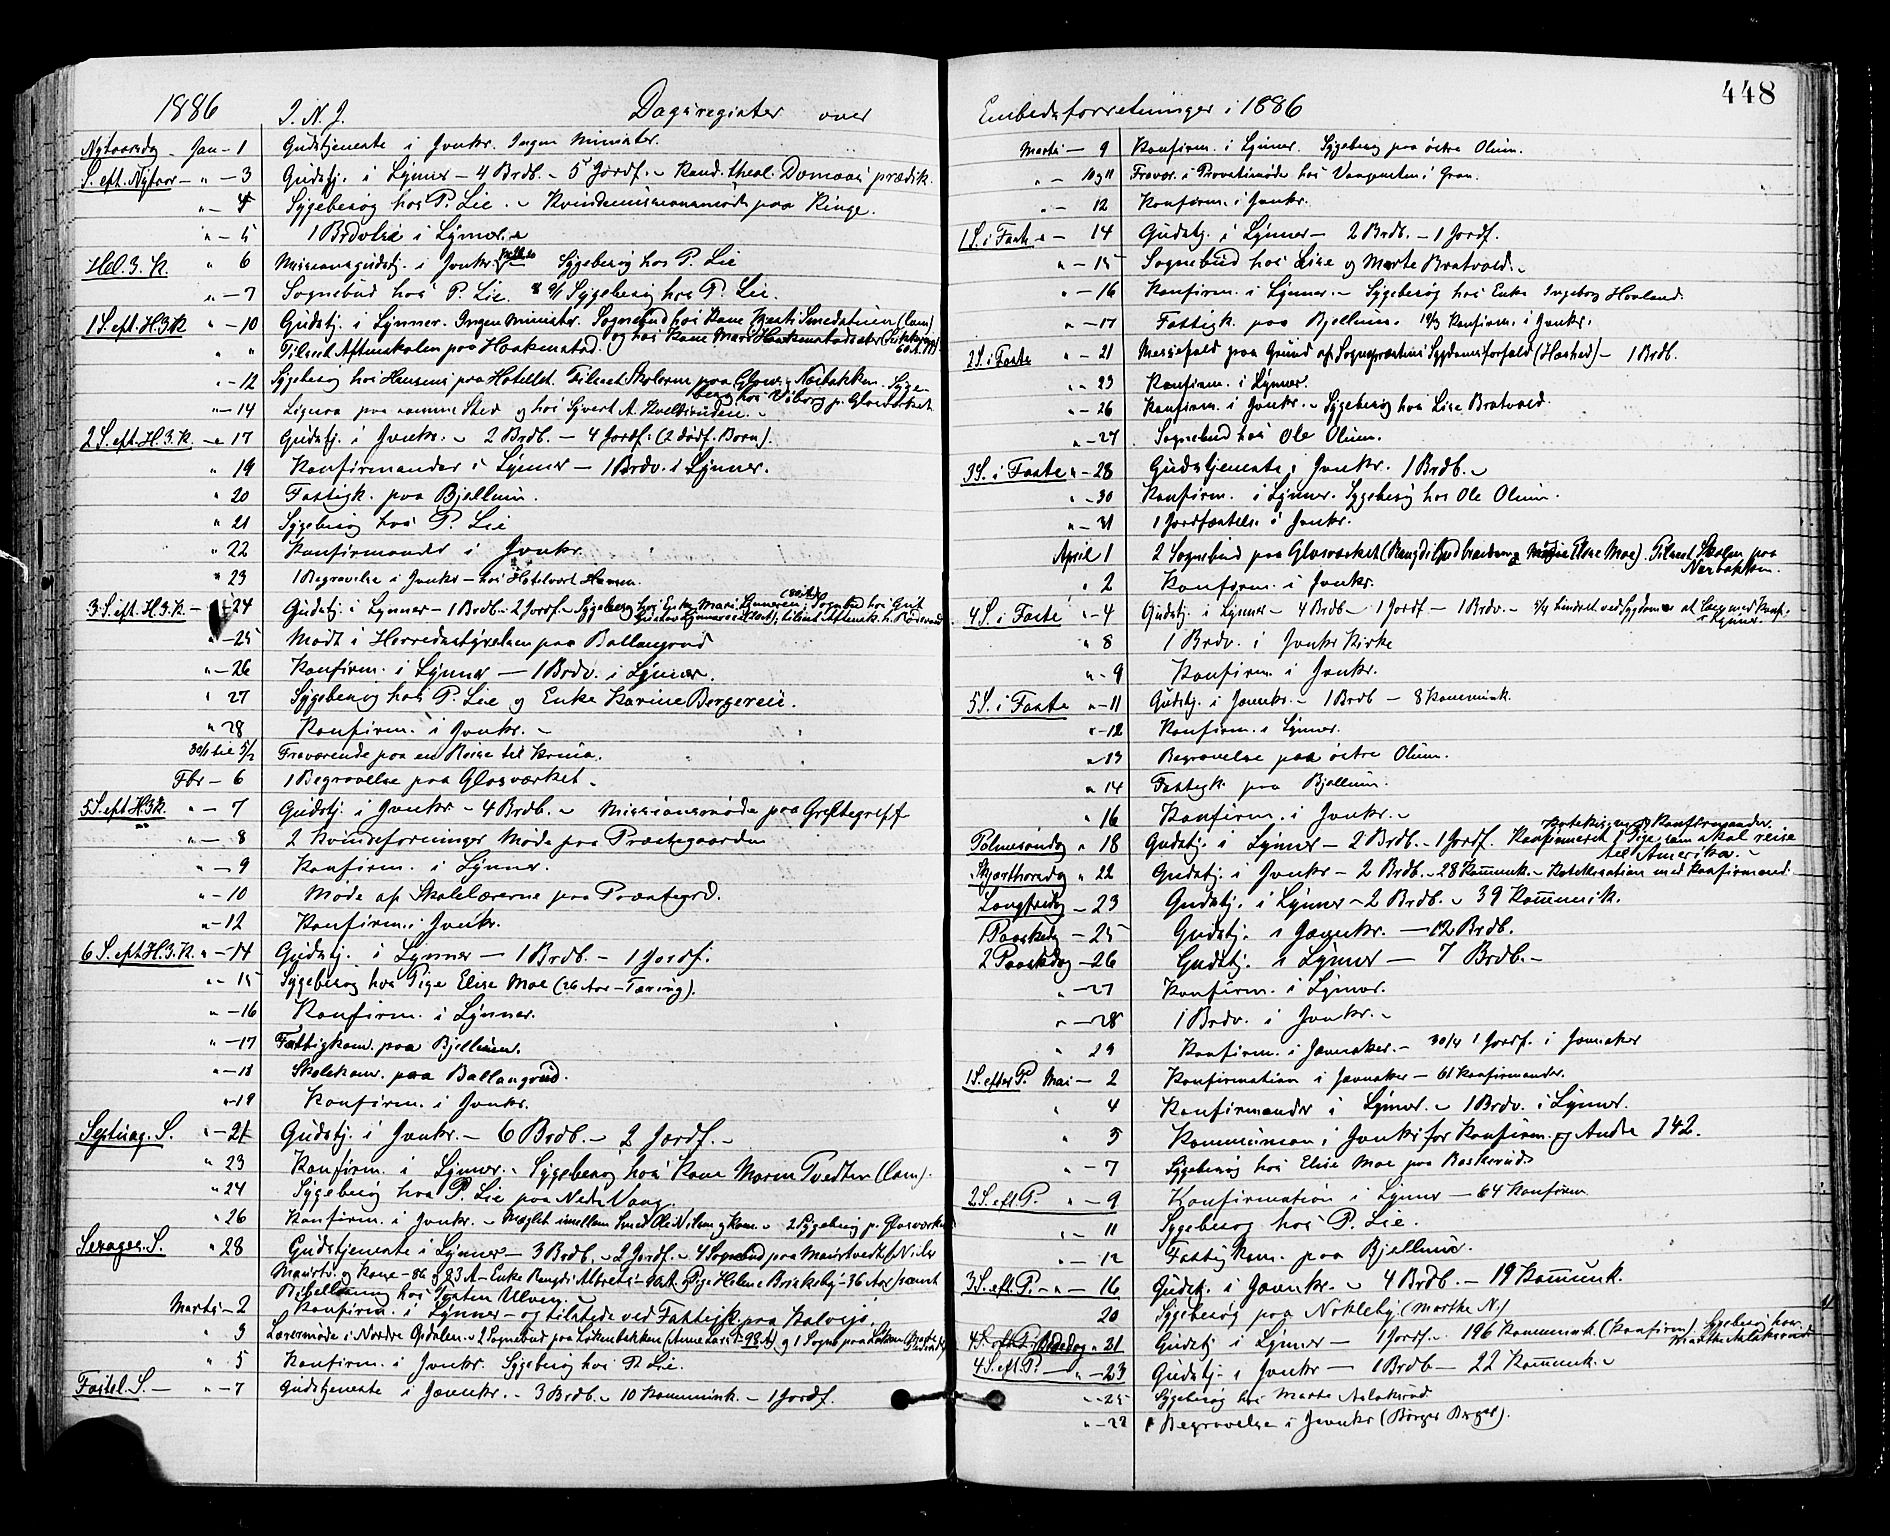 1886 I. N. J. Dagsregister over
Nytaarsdag Jan – 1 Gudstjeneste i Jvnkr. Ingen Minister.
S. eft. Nytaar – " – 3 Gudstj. i Lynner – 4 Brdb. – 5 Jordf. – Kand. theol. prædik.
" – 4 Sygebesøg hos P. Lie. – Kvindemissionsmøde paa Kinge.
" – 5 1 Brdvlse i Lynner.
Hel. 3. K. " 6 Missionsgudstj. i Jvnkr. Sygebesøg hos P. Lie
" – 7 Sognebud hos P. Lie. 8/1 Sygebesøg hos P. Lie.
1 S. eft. H3K " – 10 Gudstj. i Lynner. Ingen Minister. Sognebud hos Kone (lam)
" " Tilseet Aftenskolen paa Haakenstad. og hos Kone Mari
" – 12 Sygebesøg hos Hansens paa Hotellet. Tilseet Skolerne paa Glasv. og Næsbakken. Syge-
" – 14 Ligesaa paa samme Sted og hos Sjvert A.
2 S. eft. H. 3. K. – " 17 Gudstj. i Jvnkr. – 2 Brdb. – 4 Jordf. (2 dødf. Børn).
" 19 Konfirmander i Lynner – 1 Brdv. i Lynner.
" 20 Fattigk. paa Bjellum.
" 21 Sygebesøg hos P. Lie
" 22 Konfirmander i Jvnkr.
" 23 1 Begravelse i Jvnkr – hos Hotelvert Hansen.
3 S. eft. H. 3. K. – " – 24 Gudstj. i Lynner – 1 Brdb. – 2 Jordf. – Sygebesøg hos Enke Mari Lynnereie, Sognebud hos
" – 25 Mødt i Herredsstyrelsen paa Ballangrud
" – 26 Konfirm. i Lynner – 1 Brdv. i Lynner.
" 27 Sygebesøg hos P. Lie og Enke Karine Bergereie.
" 28 Konfirm. i Jvnkr. –
30/1 til 5/2 Fraværende paa en Reise til Krnia.
Fbr – 6 1 Begravelse paa Glasværket –
5 S. eft H3K. " – 7 Gudstj. i Jvnkr – 4 Brdb. – Missionsmøde paa Greftegreff
" – 8 2 Kvindeforeninger Møde paa Præstegaarden
" – 9 Konfirm. i Lynner.
" – 10 Møde af Skolelærerne paa Præstegrd.
" – 12 Konfirm. i Jvnkr.
6 S. eft H. 3. K. " – 14 Gudstj. i Lynner – 1 Brdb. – 1 Jordf.
" – 15 Sygebesøg hos Pige Elise Moe (26 Aar – Tæring).
" – 16 Konfirm. i Lynner.
" – 17 Fattigkom. paa Bjellum.
" – 18 Skolekom. paa Ballangrud.
" – 19 Konfirm. i Jvnkr.
Septuag. S. " – 21 Gudstj. i Jvnkr. – 6 Brdb. – 2 Jordf. –
" 23 Konfirm. i Lynner. – Sygebesøg hos Kone Maren Tvedten (lam).
" 24 Sygebesøg hos P. Lie paa Nedr Vaag
" 26 Konfirm. i Jvnkr. – Mæglet imellem Smed Ole Nilsen og Kone. – 2 Sygebesøg p. Glasværket
Sexages. S. " 28 Gudstjeneste i Lynner – 3 Brdb. – 2 Jordf. – 4 Sognebud paa
og Kone – 86 og 83 A – Enke
Bibellæsning hos Ulven.
Marts – 2 Konfirm. i Lynner – og tilstede ved Fattigk. paa Kalvsjø.
" 3 Lærermøde i Nordre Opdalen. – 2 Sognebud paa Løkenbakken
" 5 Konfirm. i Jvnkr. Sygebesøg hos P. Lie.
Fastel. S. – " – 7 Gudstjeneste i Jævnkr. – 3 Brdb. – 10 Kommunik. – 1 Jordf.
448
Embedsforretninger i 1886
Marts – 9 Konfirm. i Lynner. Sygebesøg paa østre Olum.
" – 10 og 11 Fravær. i Provstimøde hos i Gran.
" – 12 Konfirm. i Jvnkr.
1 S. i Faste " – 14 Gudstj. i Lynner – 2 Brdb. – 1 Jordf.
" – 15 Sognebud hos Lise og Marte Bratvold. –
" – 16 Konfirm. i Lynner. – Sygebesøg hos Enke Ingeborg Hovland.
" – 17 Fattigk. paa Bjellum. 19/3 Konfirm. i Jvnkr.
2 S. i Faste " – 21 Messefald paa Grund af Sognepræstens Sygdomsforfald (Hæshed) – 1 Brdb.
" – 23 Konfirm. i Lynner.
" – 26 Konfirm. i Jvnkr. – Sygebesøg hos Lise Bratvold.
" – 27 Sognebud hos Ole Olum.
3 S. i Faste " – 28 Gudstjeneste i Jvnkr. 1 Brdb. –
" – 30 Konfirm. i Lynner. Sygebesøg hos Ole Olum.
" – 31 1 Jordfæstelse i Jvnkr.
April 1 2 Sognebud paa Glasværket Moe). Tilseet Skolen paa
Næsbakken.
" 2 Konfirm. i Jvnkr.
4 S. i Faste " – 4 Gudstj. i Lynner – 4 Brdb – 1 Jordf – 1 Brdv. – hindret ved Sygdom at læse med Konf.
i Lynner.
" 8 1 Brdv. i Jvnkr Kirke
" – 9 Konfirm. i Jvnkr.
5 S. i Faste " – 11 Gudstj. i Jævnkr. – 1 Brdb – 8 Kommunk.
" – 12 Konfirm. i Lynner.
" – 13 Begravelse paa østre Olum.
" 14 Fattigk. paa Bjellum.
" 16 Konfirm. i Jvnkr. –
Palmesøndag " 18 Gudstj. i Lynner – 2 Brdb. – 1 Jordf. Konfirmeret 1 Pige som skal reise
til Amerika. –
Skjærthorsdag " 22 Gudstj. i Jvnkr – 2 Brdb. – 28 Kommunk. – Katekisation med Konfirmand.
Langfredag – 23 Gudstj. i Lynner – 2 Brdb. – 39 Kommunik.
1 Paaskedg – 25 Gudstj. i Jævnkr. – 12 Brdb.
2 Paaskdag – 26 Gudstj. i Lynner – 7 Brdb. –
" – 27 Konfirm. i Lynner.
" – 28 1 Brdv. i Jvnkr. –
" 29 Konfirm. i Jævnaker. – 30/4 1 Jordf. i Jævnaker
1 S. efter P. Mai – 2 Konfirmation i Jævnaker – 61 Konfirmander.
" 4 Konfirmander i Lynner. – 1 Brdv. i Lynner.
" 5 Kommunion i Jvnkr for Konfirm. og Andre 142.
" – 7 Sygebesøg hos Elise Moe paa Baskerud
2 S. eft P. " – 9 Konfirmation i Lynner – 64 Konfirm
" 11 Sygebesøg hos P. Lie.
" – 12 Fattigkom. paa Bjellum.
3 S. eft P. – " – 16 Gudstj. i Jævnkr. – 4 Brdb. – 19 Kommunk.
20 Sygebesøg paa Nøkleby (Marthe N.)
Bededag " 21 Gudstj i Lynner – 1 Jordf. – 196 Kommunik. (Konfirm) Sygebesøg hos
4 S. eft P. – " – 23 Gudstj. i Jvnkr – 1 Brdb – 22 Kommunk. –
" – 25 Sygebesøg hos Marte Aslaksrud
" – 27 1 Begravelse i Jvnkr (Børger Berger).